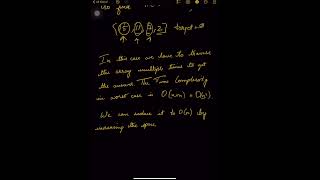 [15, 11, 7, 2] target = 9
In this case we have to traverse
the array multiple times to get
the answer. The Time Complexity
in worst case is O(n×n) = O(n²)
We can reduce it to O(n) by
increasing the space